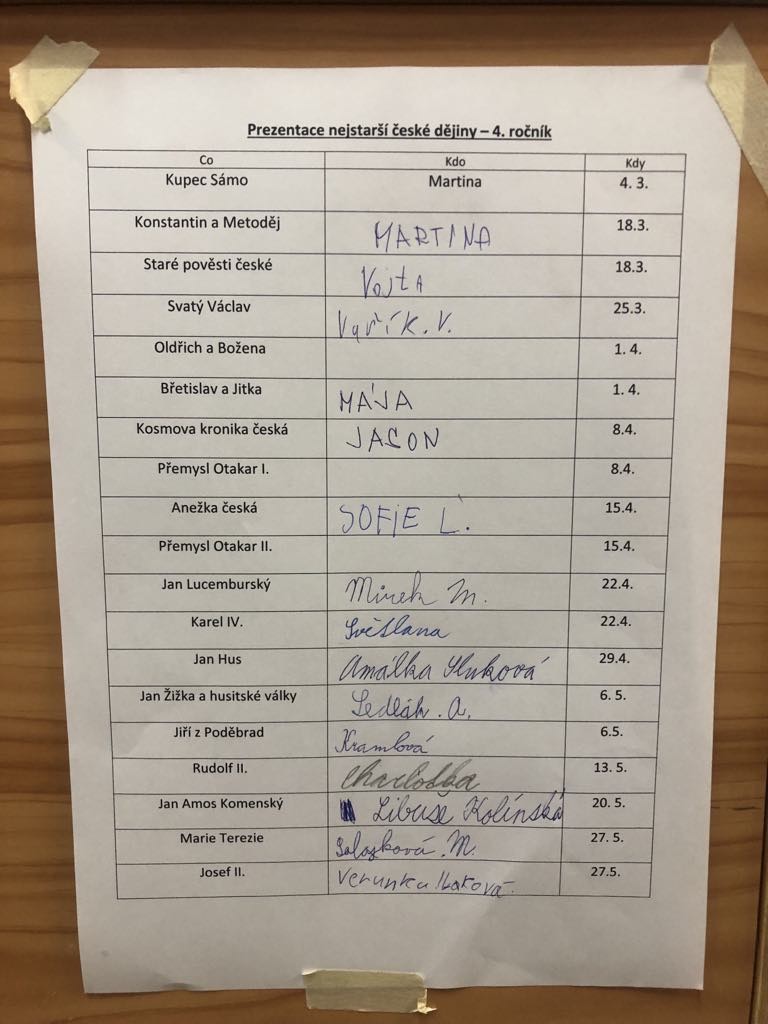 Prezentace nejstarší české dějiny – 4. ročník
Co Kdo Kdy
Kupec Sámo Martina 4. 3.
Konstantin a Metoděj MARTINA 18.3.
Staré pověsti české VojtA 18.3.
Svatý Václav Vařík. V. 25.3.
Oldřich a Božena 1. 4.
Břetislav a Jitka MÁJA 1. 4.
Kosmova kronika česká JASON 8.4.
Přemysl Otakar I. 8.4.
Anežka česká SOFIE L. 15.4.
Přemysl Otakar II. 15.4.
Jan Lucemburský Mirek M. 22.4.
Karel IV. Světlana 22.4.
Jan Hus Amálka 29.4.
Jan Žižka a husitské války Sedlák. A. 6. 5.
Jiří z Poděbrad Kramlová 6.5.
Rudolf II. Charlotka 13. 5.
Jan Amos Komenský Libuše Kolínská 20. 5.
Marie Terezie M. 27. 5.
Josef II. Verunka 27.5.